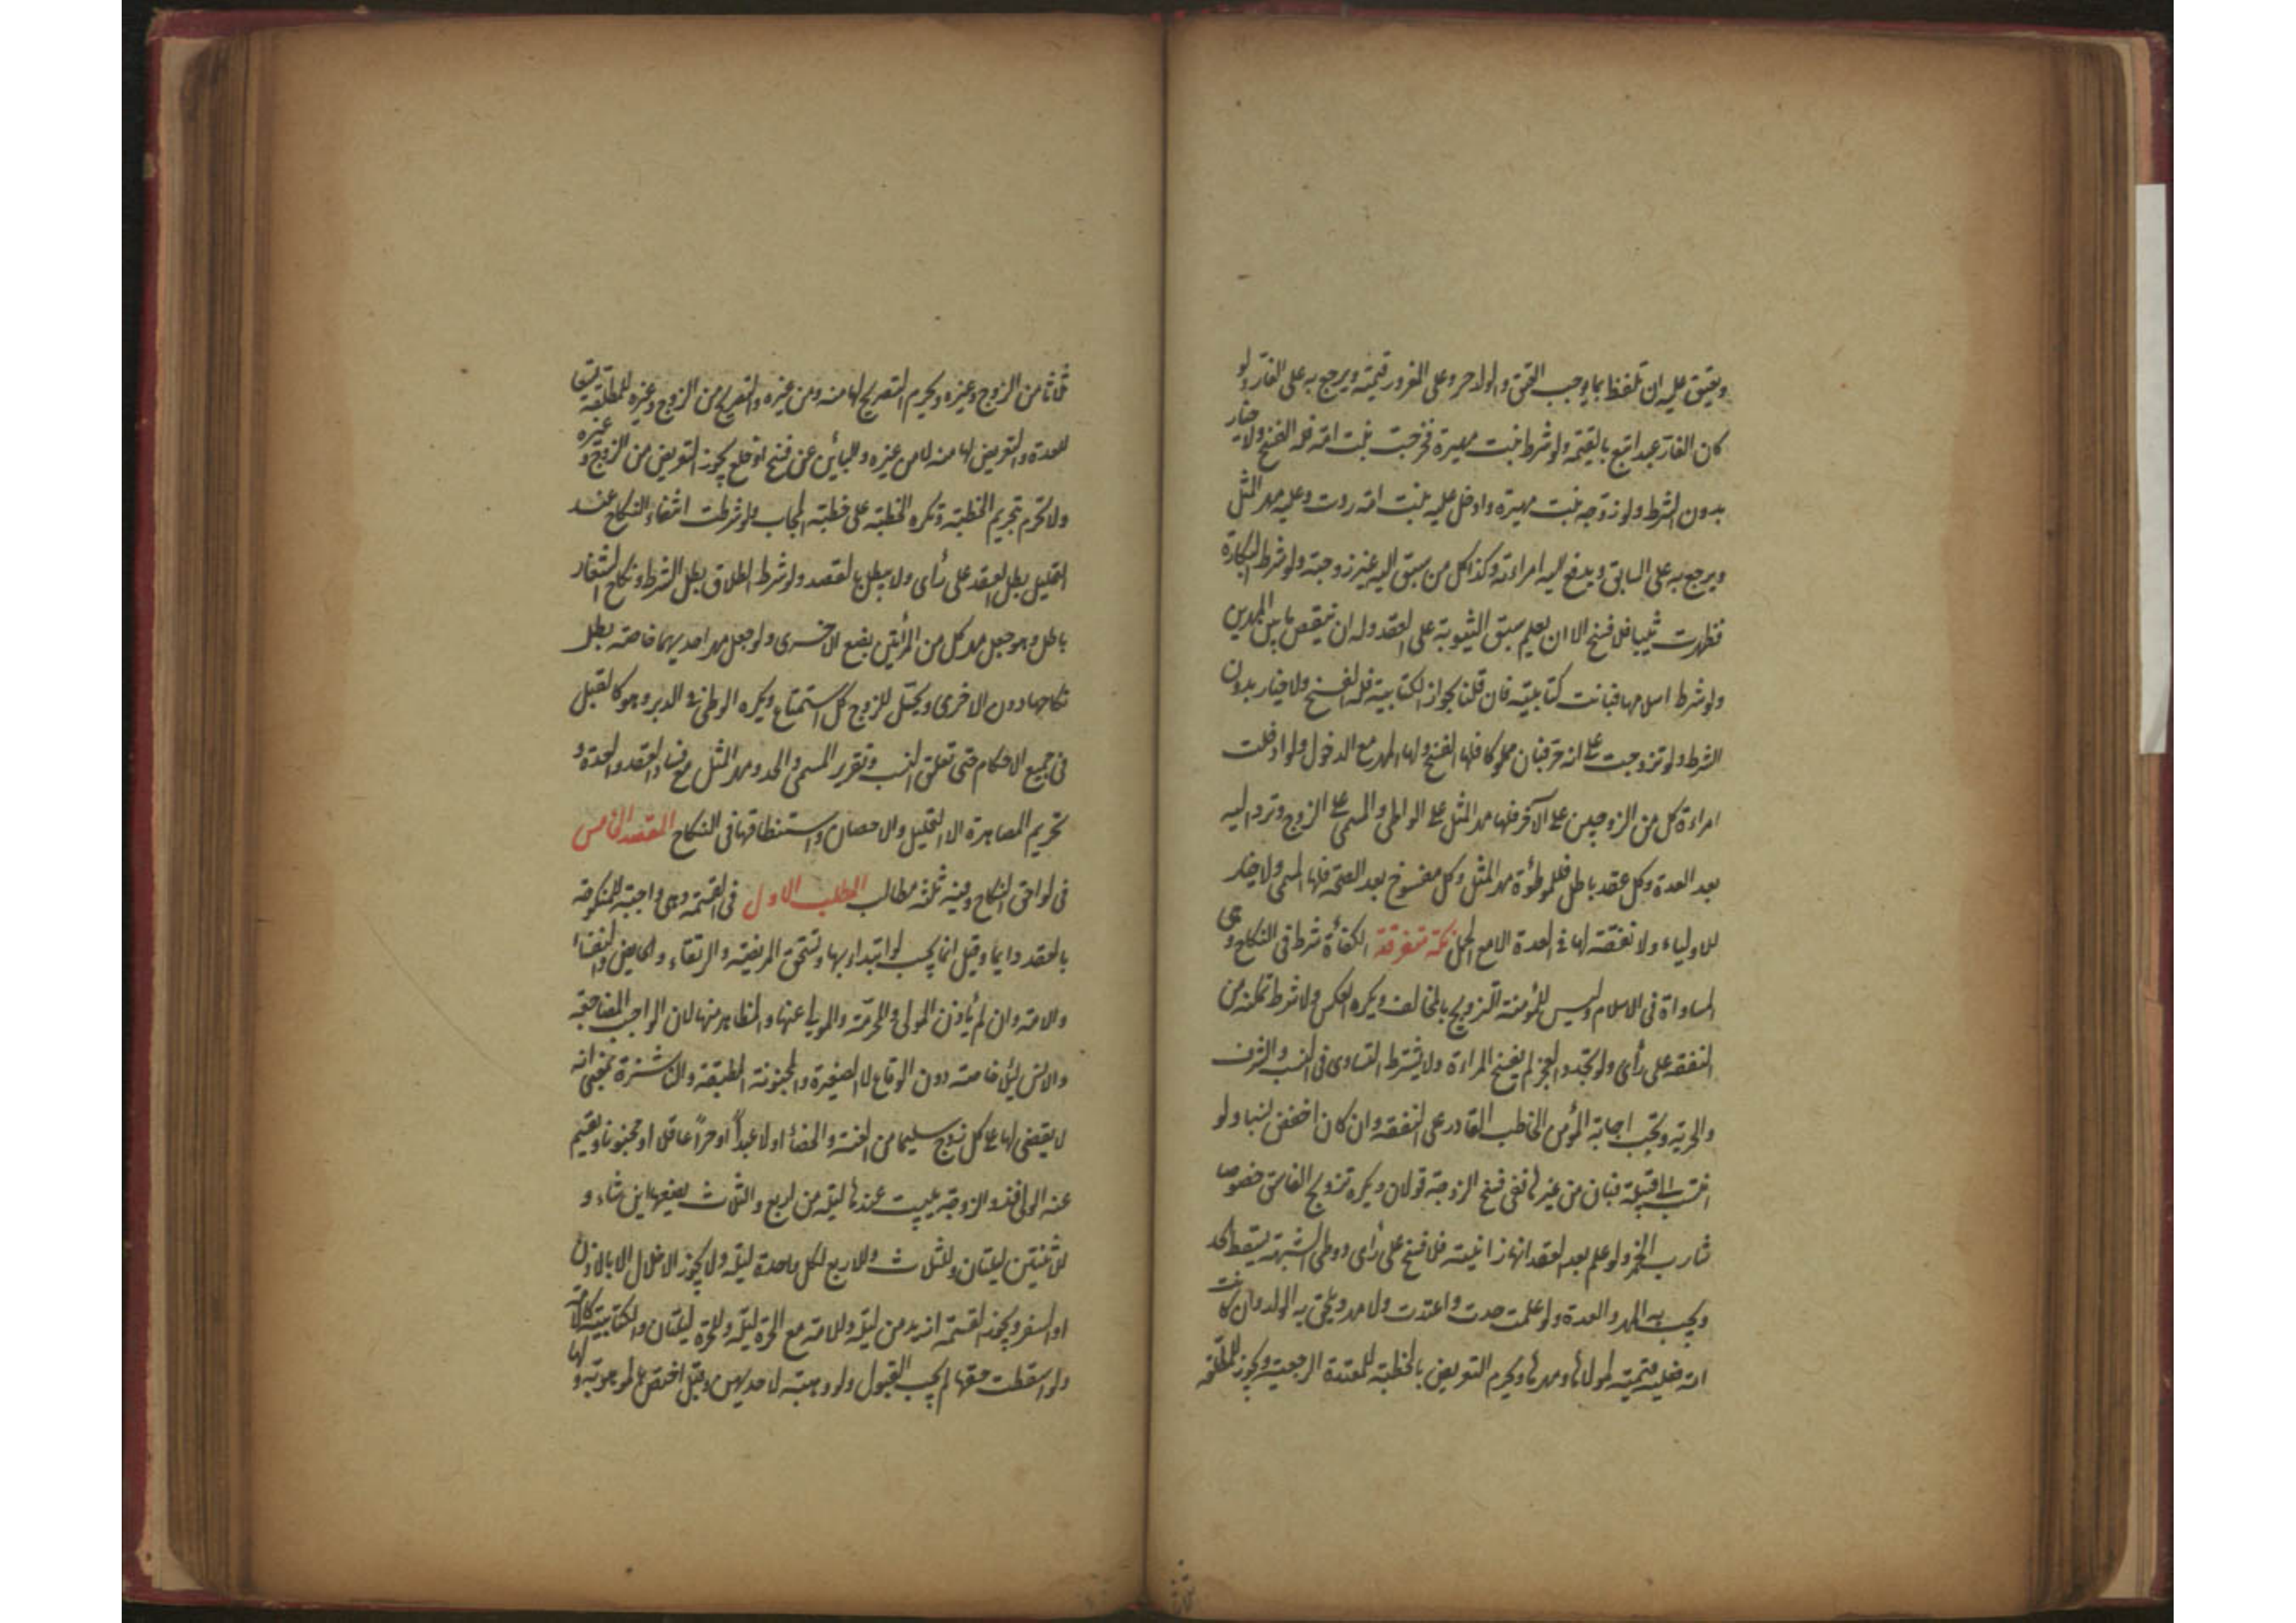 ويعتق عليه ان تلفظا بما يوجب العتق والولد حر وعلى المغرور قيمته ويرجع به على الغار ولو
كان الغار عبدا اتبع بالقيمة ولو شرط بنت مهيرة فخرجت بنت امة فله الفسخ ولا خيار
بدون الشرط ولو زوجه بنت مهيرة وادخل عليه بنت امة ردت وعليه مهر المثل
ويرجع به على السابق ويدفع اليه امراءته وكذا كل من سبق اليه غير زوجته ولو شرط البكارة
فظهرت ثيبا فلا فسخ الا ان يعلم سبق الثيوبة على العقد وله ان ينقص ما بين المهرين
ولو شرط اسلامها فبانت كتابية فان قلنا بجواز الكتابية فله الفسخ ولا خيار بدون
الشرط ولو تزوجت على انه حر فبان مملوكا فلها الفسخ ولها المهر مع الدخول ولو ادخلت
امراءة كل من الزوجين على الآخر فلها مهر المثل على الواطى والمسمى على الزوج وترد اليه
بعد العدة وكل عقد باطل فللموطوءة مهر المثل وكل مفسوخ بعد الصحة فلها المسمى ولا خيار
للاولياء ولا نفقة لها فى العدة الا مع الحمل نكتة متفرقة الكفاءة شرط فى النكاح وهى
المساواة فى الاسلام وليس للمؤمنة التزويج بالمخالف ويكره العكس ولا شرط تمكنه من
النفقة على رأى ولو تجدد العجز لم يفسخ المراءة ولا يشترط التساوى فى النسب والشرف
والحرية ويجب اجابة المؤمن الخاطب القادر على النفقة وان كان اخفض نسبا ولو
انتسب الى قبيلة فبان من غيرها ففى فسخ الزوجة قولان ويكره تزويج الفاسق خصوصا
شارب الخمر ولو علم بعد العقد انها زانية فلا فسخ على رأى ووطى الشبهة يسقط الحد
ويجب به المهر والعدة ولو علمت حدت واعتدت ولا مهر ويلحق به الولد وان كانت
امة فعليه قيمته لمولاها ومهرها ويحرم التعريض بالخطبة للمعتدة الرجعية ويجوز للمطلقة
ثلاثا من الزوج وغيره ويحرم التصريح لها منه ومن غيره والتصريح من الزوج وغيره للمطلقة تسعا
للعدة والتعريض لها منه لا من غيره والبائن عن فسخ او خلع يجوز التعريض من الزوج وغيره
ولا تحرم بتحريم الخطبة وتكره الخطبة على خطبة المجاب ولو شرطت انتفاء النكاح عند
التحليل بطل العقد على رأى ولا يبطل بالقصد ولو شرط الطلاق بطل الشرط ونكاح الشغار
باطل وهو جعل مهر كل من المرأتين بضع الاخرى ولو جعل مهر احديهما خاصة بطل
نكاحها دون الاخرى ويحل للزوج كل استمتاع ويكره الوطى فى الدبر وهو كالقبل
فى جميع الاحكام حتى تعلق النسب وتقرر المسمى والحد ومهر المثل مع فساد العقد والعدة و
تحريم المصاهرة الا التحليل والاحصان واستنطاقها فى النكاح المقصد الخامس
فى لواحق النكاح وفيه ثلثة مطالب المطلب الاول فى القسمة وهى واجبة للمنكوحة
بالعقد دايما وقيل انما يجب لو ابتدأ بها وتستحق المريضة والرتقاء والحايض والنفساء
والامة وان لم يأذن المولى والمحرمة والمولى عنها والمظاهر منها لان الواجب المضاجعة
والانس ليلا خاصة دون الوقاع لا الصغيرة والمجنونة المطبقة والناشزة بمعنى انه
لا يقضى لها على كل زوج سليما من العنة والخصاء او لا عبدا او حرا عاقلا او مجنونا ويقسم
عنه الولى فذو الزوجة يبيت عندها ليلة من اربع والثلاث يضعها اين شاء و
للاثنتين ليلتان وللثلاث والاربع لكل واحدة ليلة ولا يجوز الاخلال الا بالاذن
او السفر ويجوز القسمة ازيد من ليلة وللامة مع الحرة ليلة وللحرة ليلتان والكتابية كالامة
ولو اسقطت حقها لم يجب القبول ولو وهبته لاحديهن وقبل اختص بالموهوبة ولها